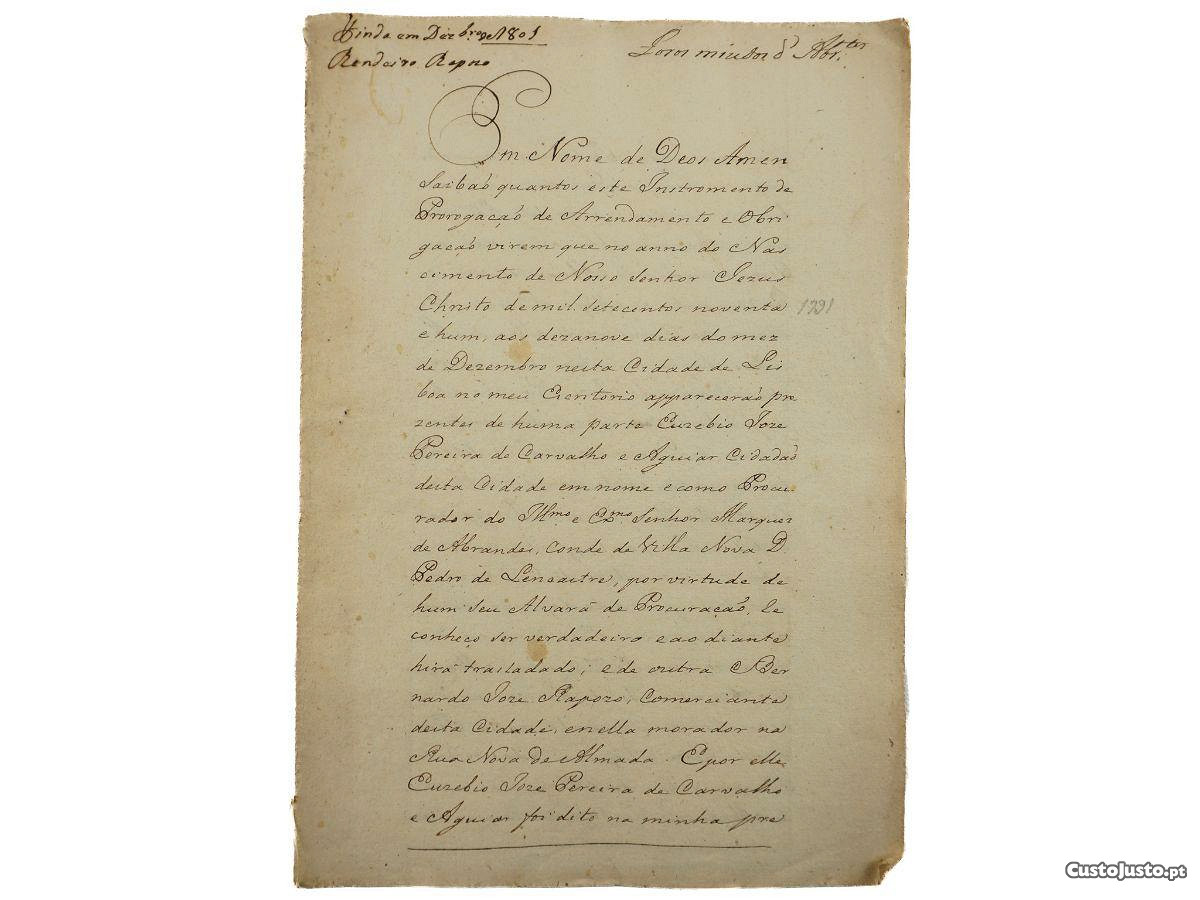 Finda em Dezbro. de 1801
Rendeiro Rapozo
Foros miudos d' Abr.tes
Em Nome de Deos Amen
Saibaõ quantos este Instromento de
Prorogaçaõ de Arrendamento e Obri
gaçaõ virem que no anno do Nas
cimento de Nosso Senhor Jezus
Christo de mil setecentos noventa
e hum, aos dezanove dias do mez
de Dezembro nesta Cidade de Lis
boa no meu Escritorio apparecéraõ pre
zentes de huma parte Euzebio Joze
Pereira de Carvalho e Aguiar Cidadaõ
desta Cidade em nome e como Procu
rador do Illmo e Exmo Senhor Marquez
de Abrandes, Conde de Villa Nova D.
Pedro de Lencastre, por virtude de
hum seu Alvará de Procuraçaõ, q̃ re
conheço ser verdadeiro e ao diante
hirá trasladado; e de outra Ber
nardo Joze Rapozo, Comerciante
desta Cidade, e nella morador na
Rua Nova de Almada. E por elle
Euzebio Joze Pereira de Carvalho
e Aguiar foi dito na minha pre
1791
CustoJusto.pt